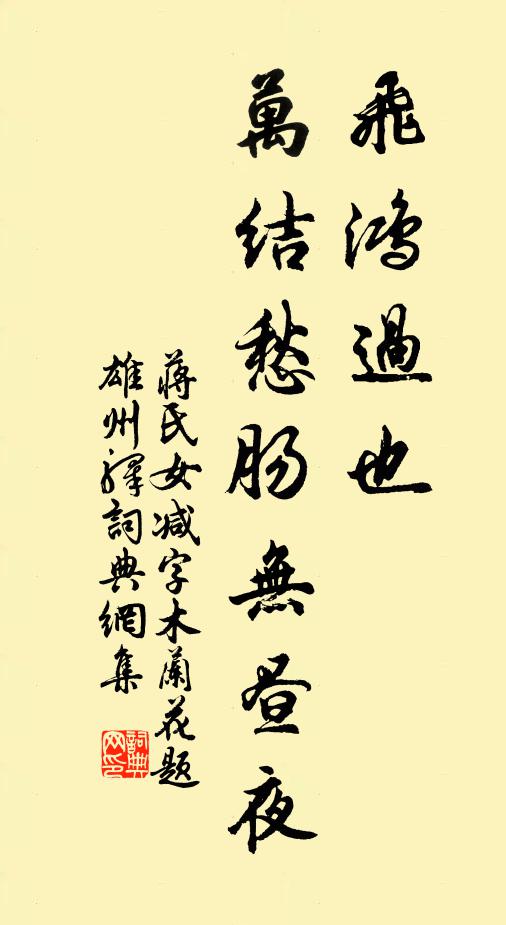 飛鴻過也
萬結愁腸無晝夜
蔣氏女减字木蘭花題
雄州驛詞典網集
詞典網印